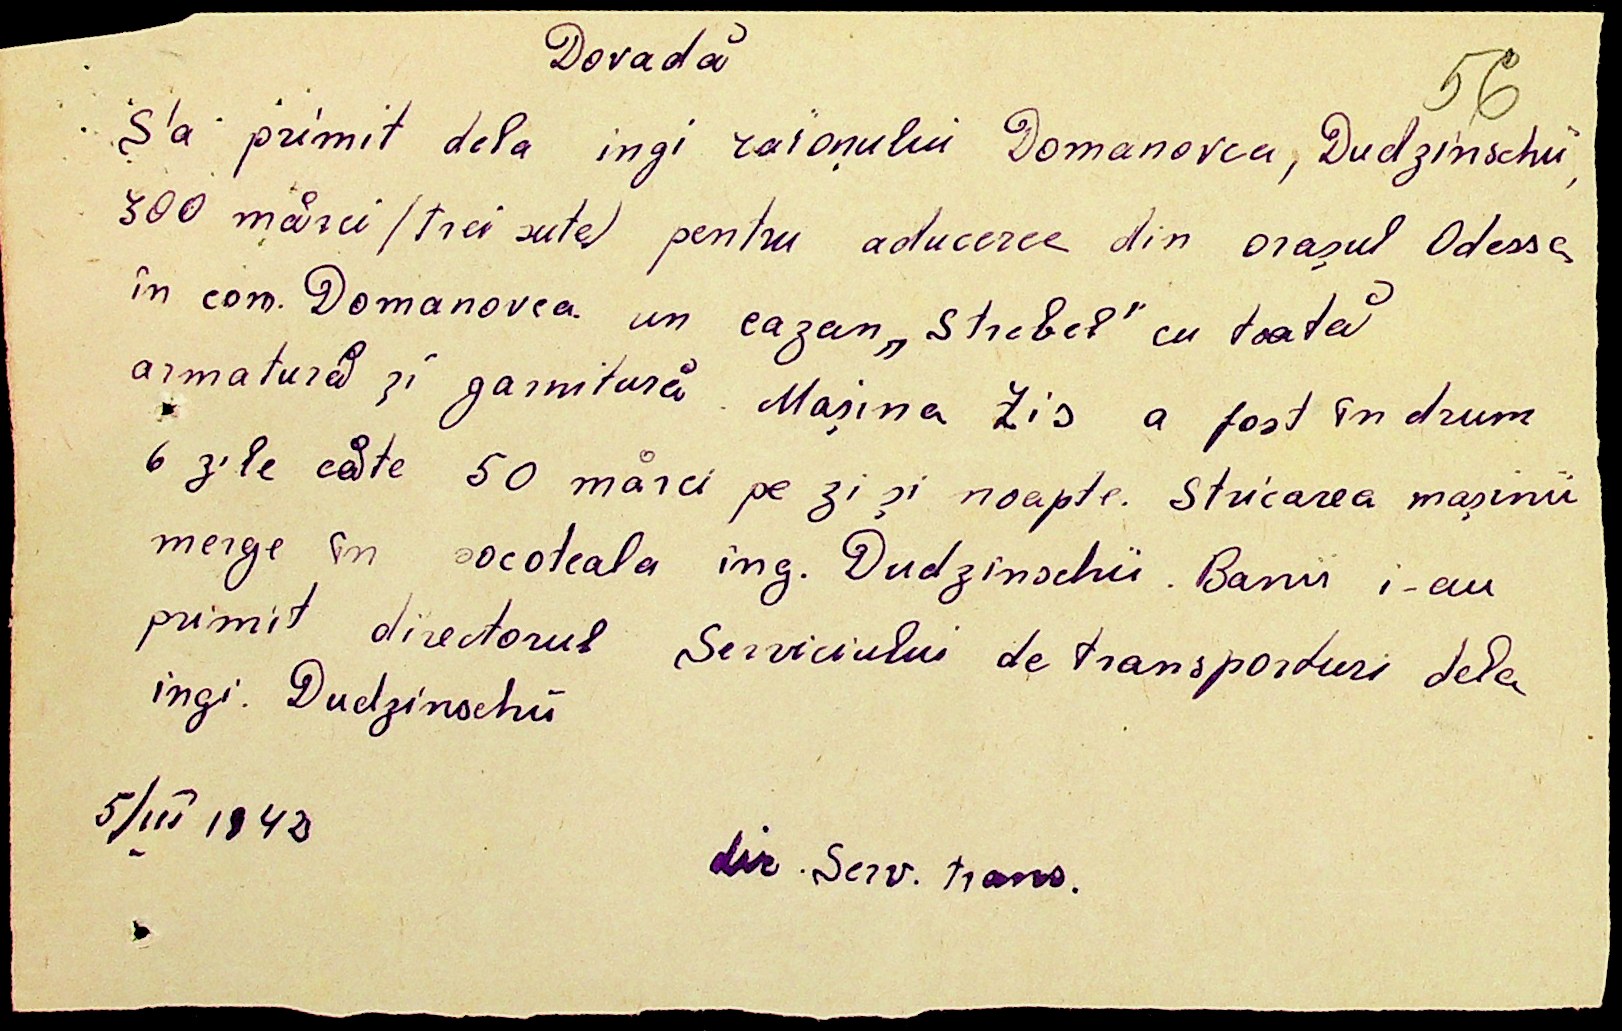 Dovadă
56
S'a primit dela ingi raionului Domanovca, Dudzinschii,
300 mărci /trei sute/ pentru aducerea din orașul Odessa
în com. Domanovca un cazan „Strebel" cu toată
armatură și garnitură. Mașina Zis a fost în drum
6 zile câte 50 mărci pe zi și noapte. Stricarea mașinii
merge în socoteala ing. Dudzinschii. Banii i-au
primit directorul Serviciului de transporturi dela
ingi. Dudzinschii
5/III 1942
dir. Serv. trans.